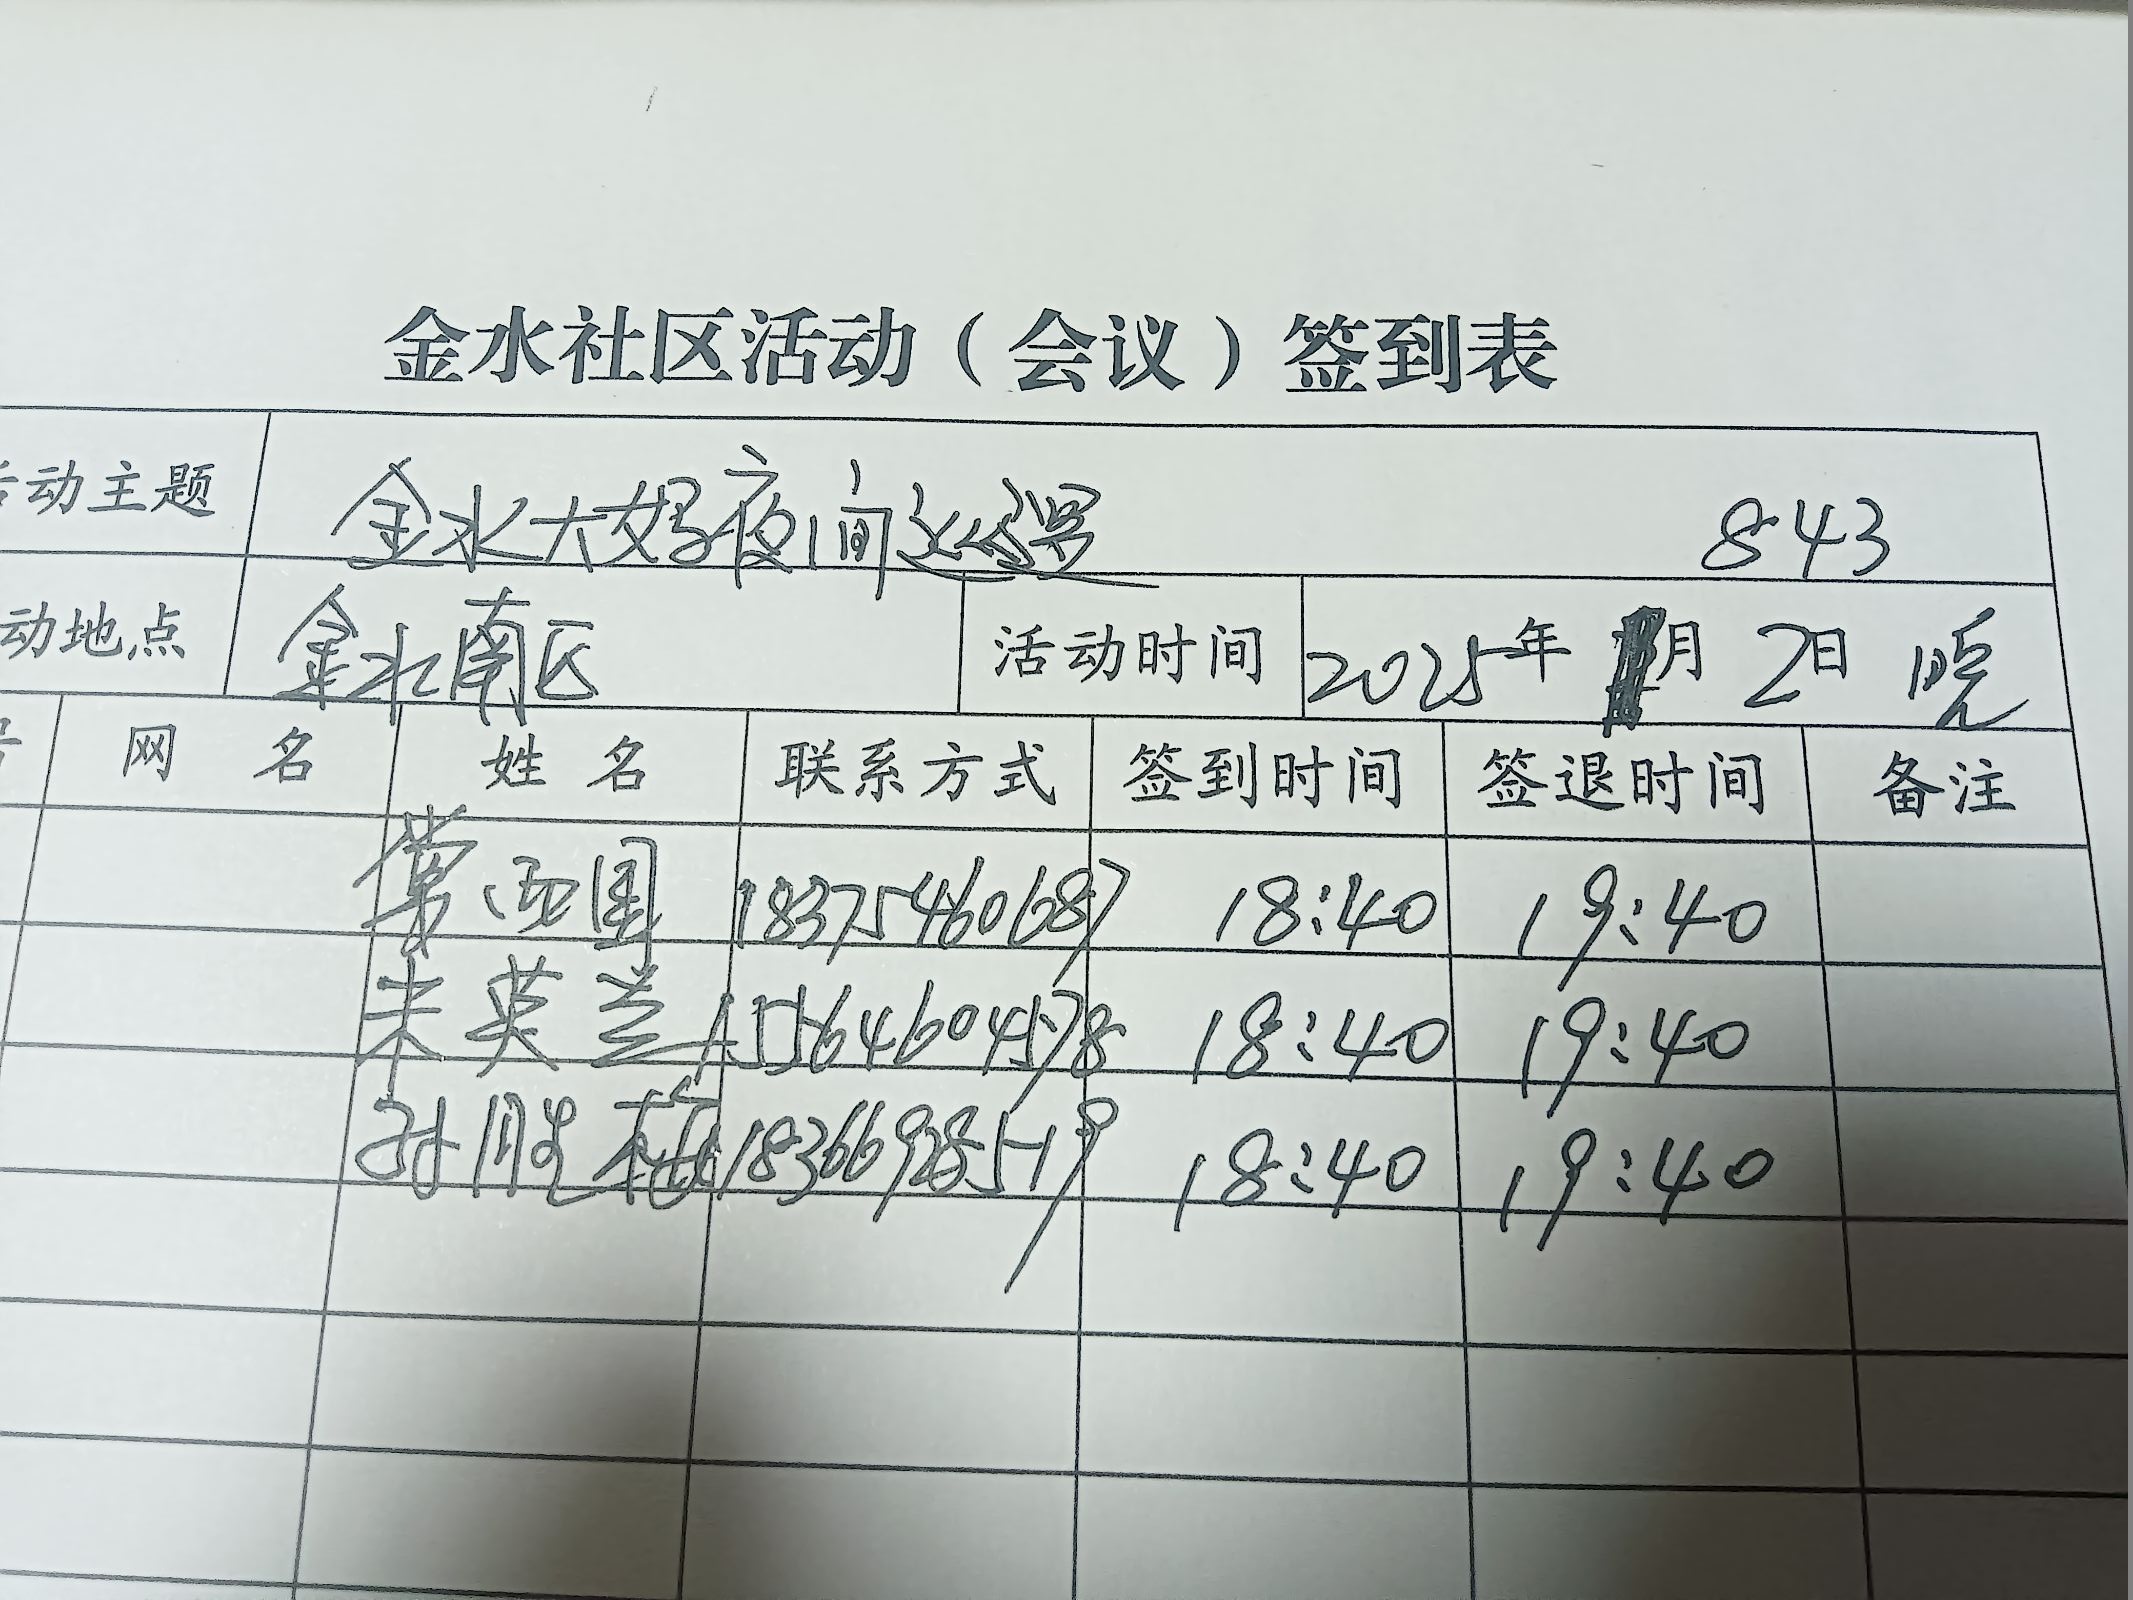 金水社区活动（会议）签到表
动主题 金水大妈夜间巡逻 843
动地点 金水南区 活动时间 2025年 月 2日 晚
号 网名 姓名 联系方式 签到时间 签退时间 备注
国 18375460687 18:40 19:40
朱英兰 15564604578 18:40 19:40
18366928519 18:40 19:40